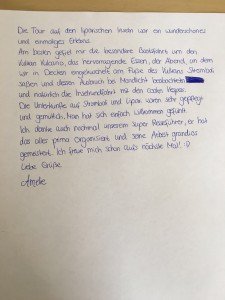 Die Tour auf den liparischen Inseln war ein wunderschönes
und einmaliges Erlebnis.
Am besten gefiel mir die besondere Bootsfahrt um den
Vulkan Vulcano, das hervorragende Essen, der Abend, an dem
wir in Decken eingekuschelt am Fuße des Vulkans Stromboli
saßen und dessen Ausbruch bei Mondlicht beobachteten
und natürlich die Inselrundfahrt mit den coolen Vespas.
Die Unterkünfte auf Stromboli und Lipari waren sehr gepflegt
und gemütlich. Man hat sich einfach willkommen gefühlt.
Ich danke auch nochmal unserem super Reiseführer, er hat
das alles prima organisiert und seine Arbeit grandios
gemeistert. Ich freue mich schon aufs nächste Mal! :D
Liebe Grüße
Amelie